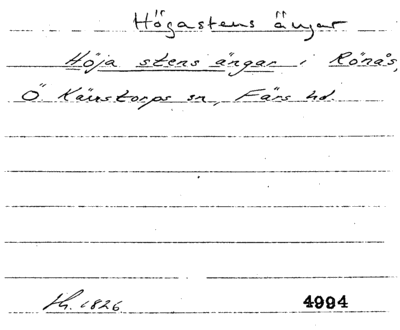 Högastens ängar
Höja stens ängar i Rönås,
Ö Kärrstorps sn, Färs hd.
Lh. 1826 4994